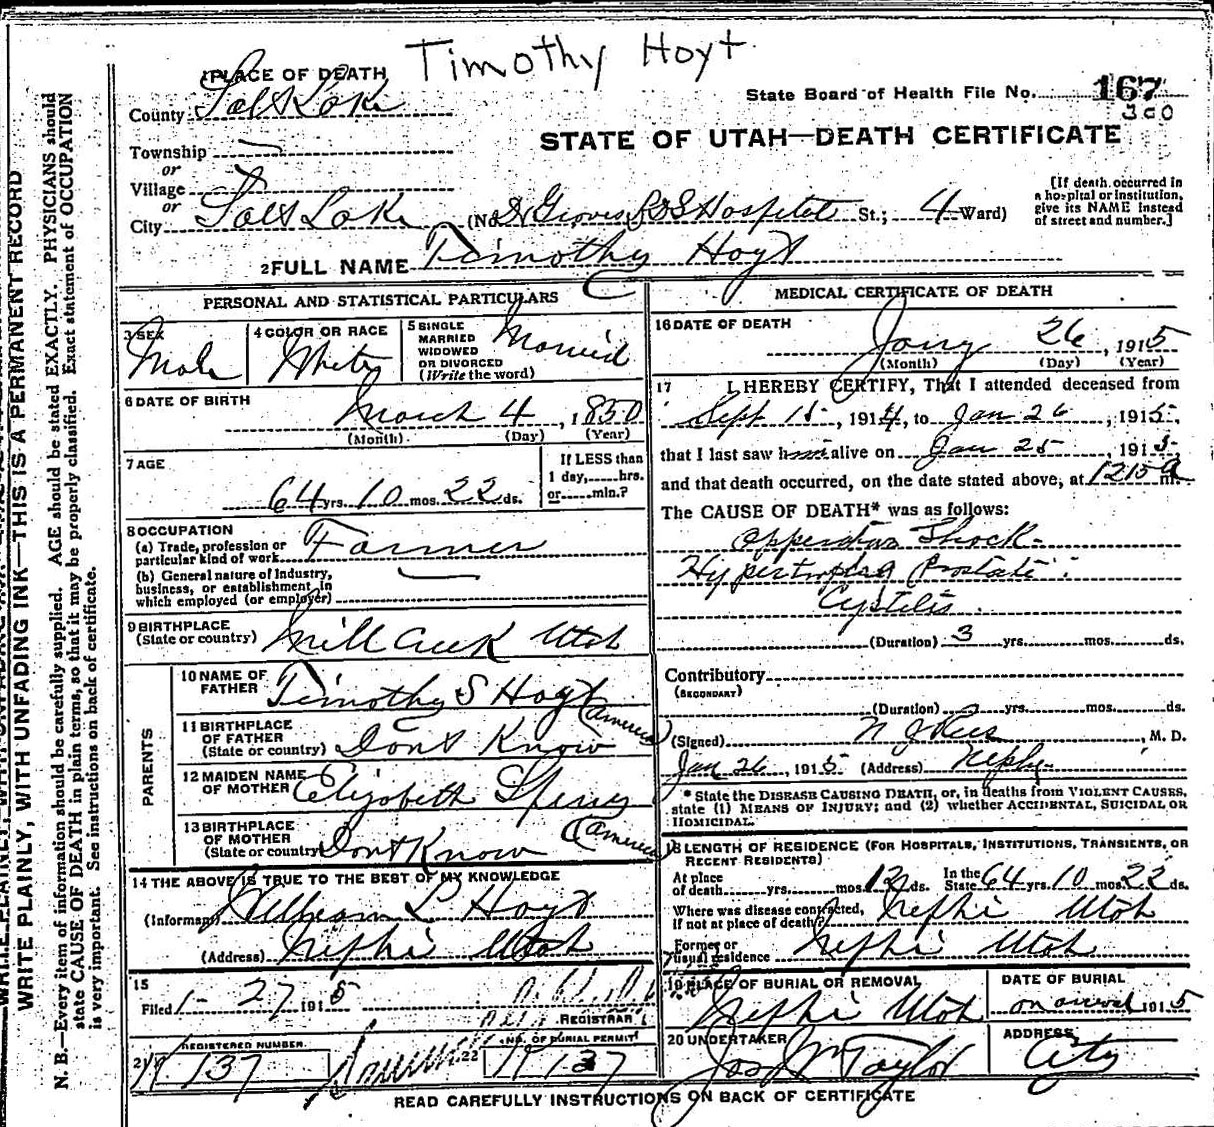 Timothy Hoyt
1 PLACE OF DEATH
County Salt Lake
State Board of Health File No. 167
300
STATE OF UTAH—DEATH CERTIFICATE
Township
or
Village
or
City Salt Lake (No. Dr Groves LDS Hospital St.; 4 Ward)
[If death occurred in
a hospital or institution,
give its NAME instead
of street and number.]
2 FULL NAME Timothy Hoyt
PERSONAL AND STATISTICAL PARTICULARS
3 SEX Male
4 COLOR OR RACE White
5 SINGLE
MARRIED
WIDOWED
OR DIVORCED
(Write the word) Married
6 DATE OF BIRTH
March 4, 1850
(Month) (Day) (Year)
7 AGE
64 yrs. 10 mos. 22 ds.
If LESS than
1 day,.....hrs.
or......min.?
8 OCCUPATION
(a) Trade, profession or
particular kind of work Farmer
(b) General nature of Industry,
business, or establishment in
which employed (or employer)
9 BIRTHPLACE
(State or country) Mill Creek Utah
PARENTS
10 NAME OF
FATHER Timothy S Hoyt
11 BIRTHPLACE
OF FATHER
(State or country) Dont Know (America)
12 MAIDEN NAME
OF MOTHER Elizabeth
13 BIRTHPLACE
OF MOTHER
(State or country) Dont Know (America)
14 THE ABOVE IS TRUE TO THE BEST OF MY KNOWLEDGE
(Informant) William L Hoyt
(Address) Nephi Utah
15
Filed 1-27 1915
REGISTRAR
REGISTERED NUMBER
21 137
22 NO. OF BURIAL PERMIT
137
MEDICAL CERTIFICATE OF DEATH
16 DATE OF DEATH
Jany 26, 1915
(Month) (Day) (Year)
17 I HEREBY CERTIFY, That I attended deceased from
Sept 15, 1914, to Jan 26, 1915,
that I last saw him alive on Jan 25, 1915,
and that death occurred, on the date stated above, at 1215 a m.
The CAUSE OF DEATH* was as follows:
Opperative Shock
Hypertrophia Prostate
Cystitis
(Duration) 3 yrs. mos. ds.
Contributory
(SECONDARY)
(Duration) yrs. mos. ds.
(Signed) , M. D.
Jan 26, 1915 (Address) Nephi
* State the DISEASE CAUSING DEATH, or, in deaths from VIOLENT CAUSES,
state (1) MEANS OF INJURY; and (2) whether ACCIDENTAL, SUICIDAL OR
HOMICIDAL.
18 LENGTH OF RESIDENCE (FOR HOSPITALS, INSTITUTIONS, TRANSIENTS, OR
RECENT RESIDENTS)
At place
of death yrs. mos. 12 ds. In the
State 64 yrs. 10 mos. 22 ds.
Where was disease contracted,
if not at place of death? Nephi Utah
Former or
usual residence Nephi Utah
19 PLACE OF BURIAL OR REMOVAL
Nephi Utah
DATE OF BURIAL
on arrival 1915
20 UNDERTAKER
Jos Wm Taylor
ADDRESS
City
READ CAREFULLY INSTRUCTIONS ON BACK OF CERTIFICATE
WRITE PLAINLY, WITH UNFADING INK—THIS IS A PERMANENT RECORD
N. B.—Every item of information should be carefully supplied. AGE should be stated EXACTLY. PHYSICIANS should
state CAUSE OF DEATH in plain terms, so that it may be properly classified. Exact statement of OCCUPATION
is very important. See instructions on back of certificate.